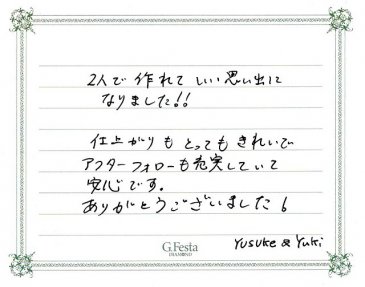 2人で作れていい思い出に
なりました!!
仕上がりもとってもきれいで
アフターフォローも充実していて
安心です。
ありがとうございました!
G.Festa
DIAMOND
Yusuke & Yuki